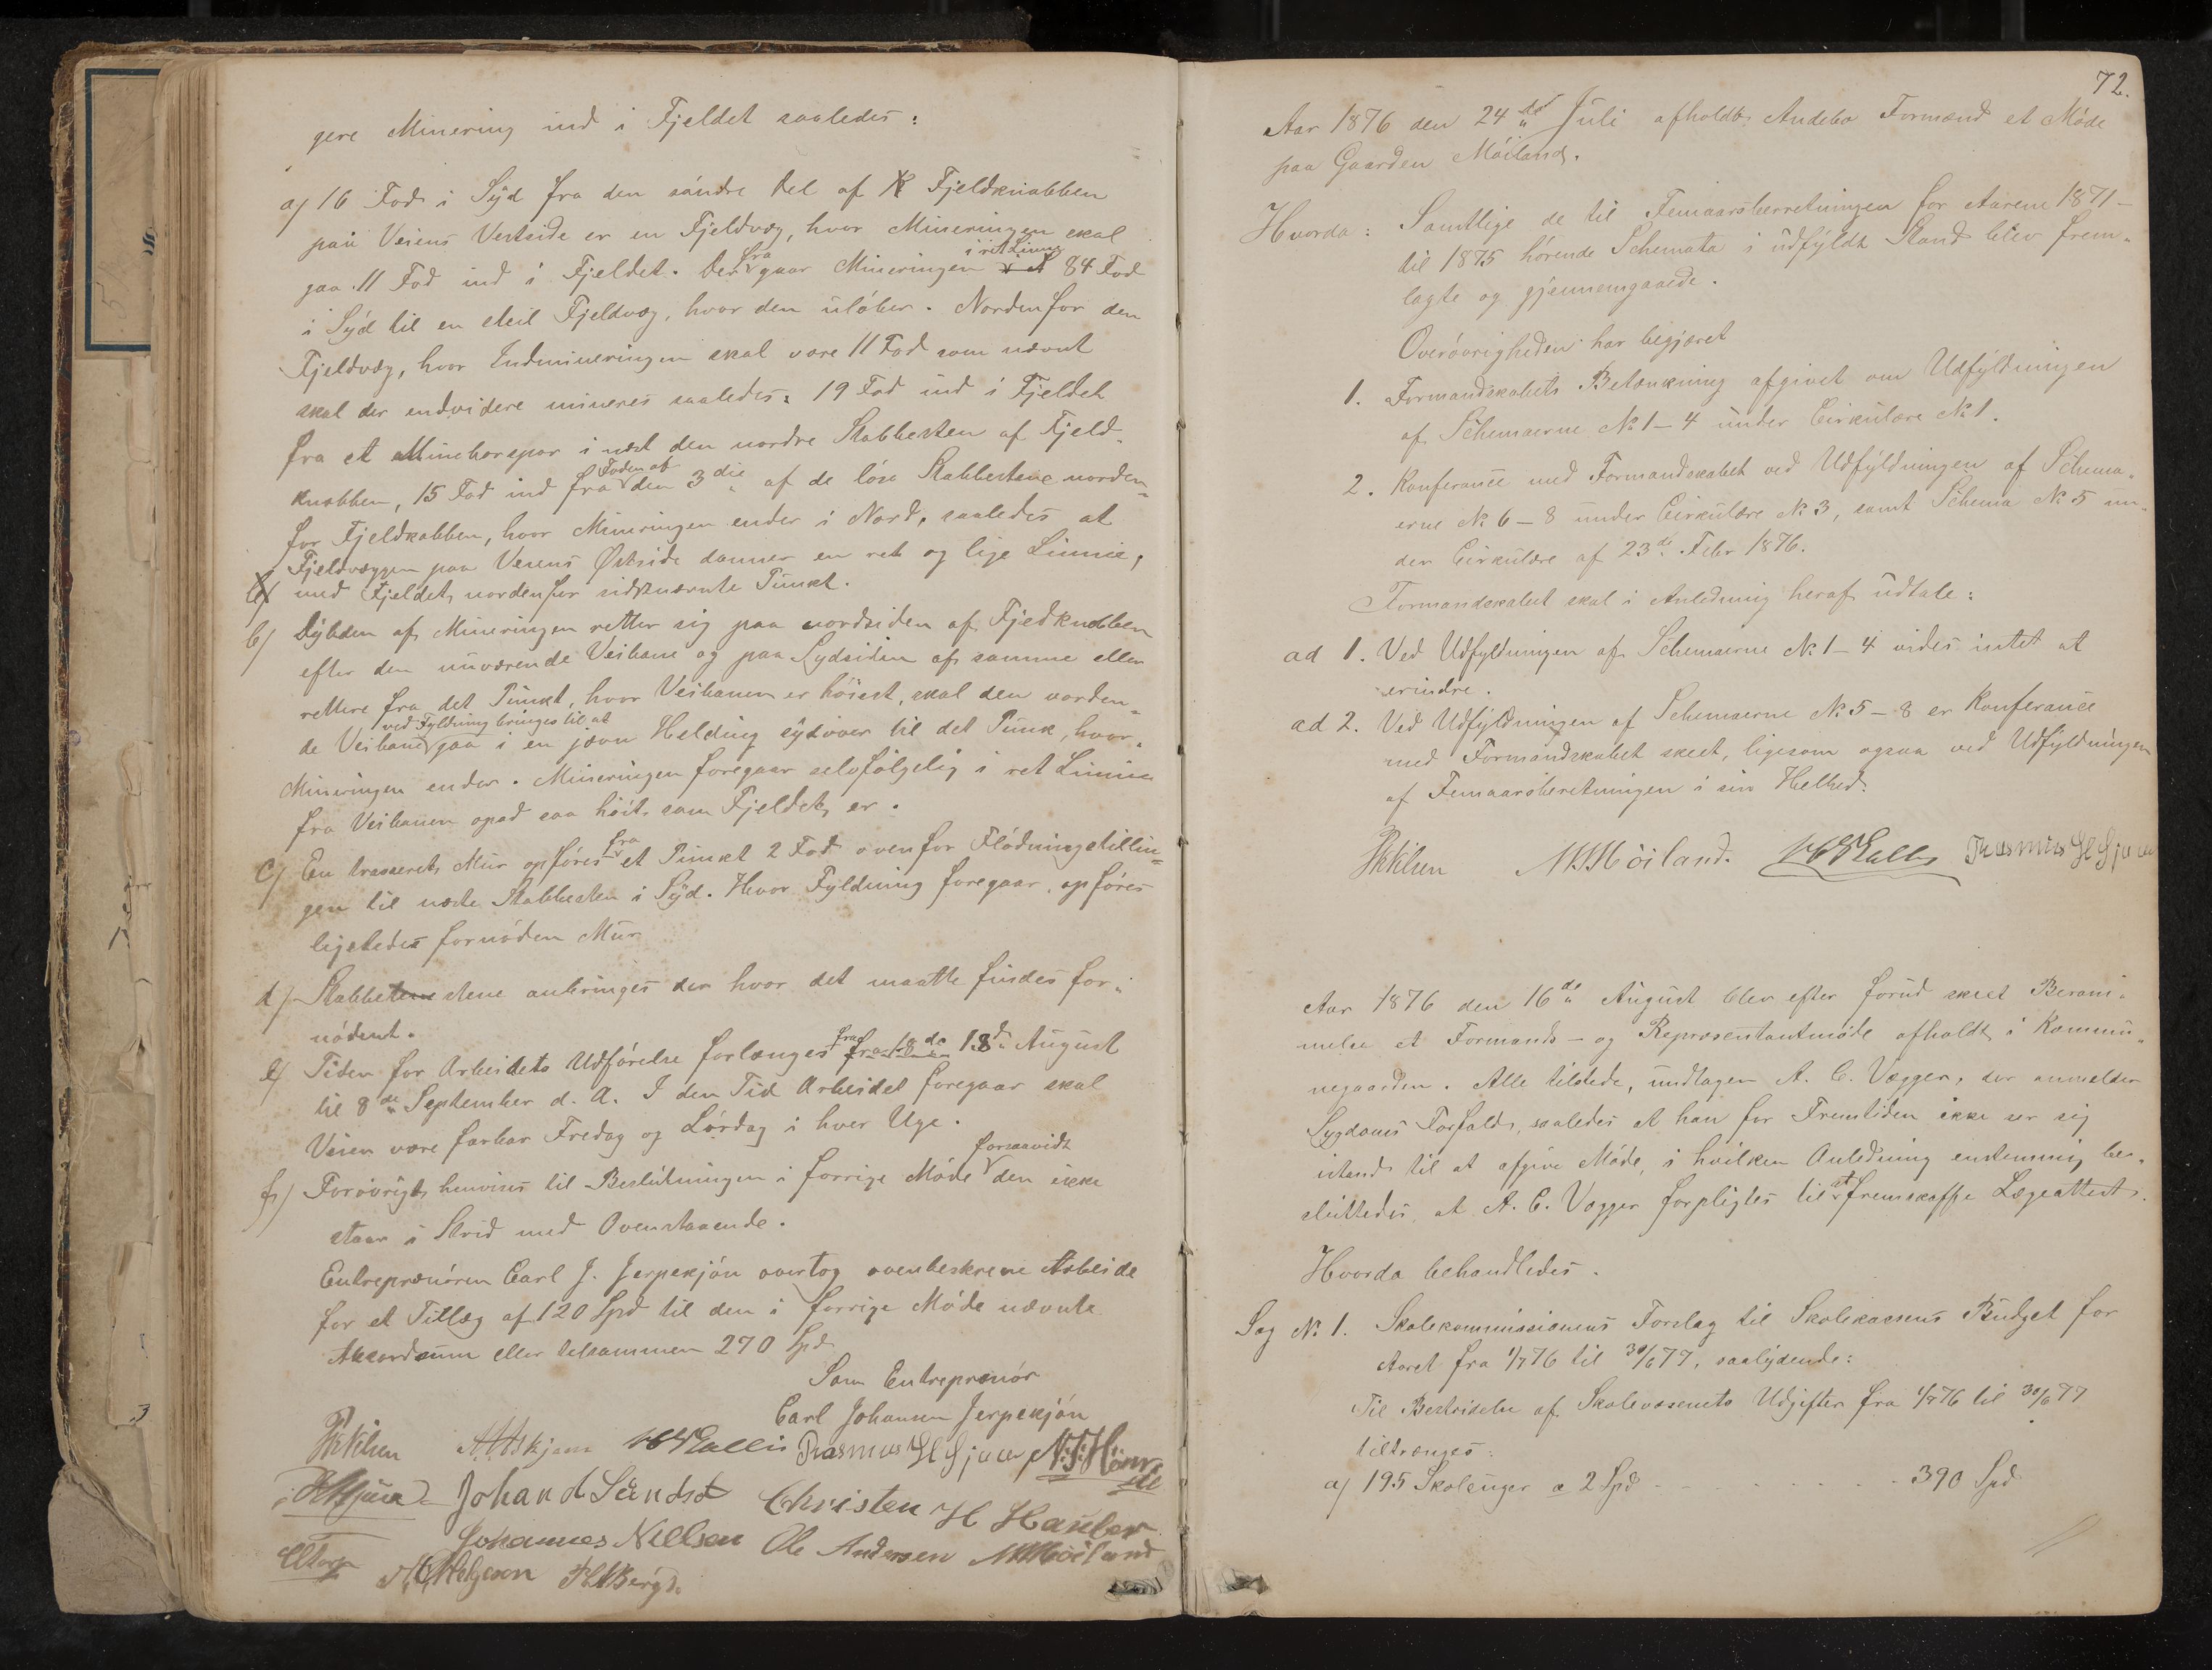 gere Minering ind i Fjeldet saaledes:
a) 16 Fod i Syd fra den söndre Del af Fjeldknabben
paa Veiens Vestside er en Fjeldvæg, hvor Mineringen skal
gaa 11 Fod ind i Fjeldet. Derfra gaar Mineringen i ret Linie 84 Fod
i Syd til en steil Fjeldvæg, hvor den ulöber. Nordenfor den
Fjeldvæg, hvor Indmineringen skal være 11 Fod som nævnt
skal der endvidere mineres saaledes: 19 Fod ind i Fjeldet
fra et Mineborspor i næst den nordre Stabbesten af Fjeld-
knabben, 15 Fod ind fra Foden af den 3die af de löse Stabbestene norden-
for Fjeldkabben, hvor Mineringen ender i Nord, saaledes at
Fjeldvæggen paa Veiens Østside danner en ret og lige Linnie,
med Fjeldet nordenfor sidstnævnte Punkt.
b) Dybden af Mineringen retter sig paa nordsiden af Fjedknabben
efter den nuværende Veibane og paa Sydsiden af samme eller
rettere fra det Punkt, hvor Veibanen er höiest, skal den vorden-
de Veibane ved Fyldning bringes til at gaa i en jævn Helding sydover til det Punk, hvor
Mineringen ender. Mineringen foregaar selvfölgelig i ret Linnie
fra Veibanen opad saa höit som Fjeldet er.
c) En trasseret Mur opföres fra et Punkt 2 Fod ovenfor Flödningstillin-
gen til næste Stabbesten i Syd. Hvor Fyldning foregaar, opföres
ligeledes fornöden Mur
d) Stabbestene anbringes der hvor det maatte findes for-
nödent.
e) Tiden for Arbeidets Udförelse forlænges fra 18de August
til 8de September d. A. I den Tid Arbeidet foregaar skal
Veien være farbar Fredag og Lördag i hver Uge.
f) Forövrigt henvises til Beslutningen i forrige Möde forsaavidt den ikke
staar i Strid med Ovenstaaende.
Entreprenören Carl J. Jerpekjön overtog ovenbeskrevne Arbeide
for et Tillæg af 120 Spd til den i forrige Möde nævnte
Akkordsum eller tilsammen 270 Spd
Som Entreprenör
Carl Johansen Jerpekjön
Rasmus H Gjerver
Johan d Sundst Christen H Hauber
Johannes Nillsen Ole Andersen Möiland
72.
Aar 1876 den 24de Juli afholdt Andebo Formænd et Möde
paa Gaarden Möiland.
Hvorda: Samtlige de til Femaarsberretningen for Aarene 1871-
til 1875 hörende Schemata i udfyldt Stand blev frem-
lagte og gjennemgaaede.
Overövrigheden har begjæret
1. Formandskabets Betænkning afgivet om Udfyldningen
af Schemaerne No 1-4 under Cirkulære No 1.
2. Konferance med Formandskabet ved Udfyldningen af Schema-
erne No 6-8 under Cirkulære No 3, samt Schema No 5 un-
der Cirkulære af 23de Febr 1876.
Formandskabet skal i Anledning heraf udtale:
ad 1. Ved Udfyldningen af Schemaerne No 1-4 vides intet at
erindre.
ad 2. Ved Udfyldningen af Schemaerne No 5-8 er Konferance
med Formandskabet skeet, ligesom ogsaa ved Udfyldningen
af Femaarsberetningen i sin Helhed.
Möiland. Rasmus H Gjerver
Aar 1876 den 16de August blev efter forud skeet Beram-
melse et Formands- og Repræsentantmöde afholdt i Kommu-
negaarden. Alle tilstede, undtagen A. C. Vegger, der anmelder
Sygdoms Forfald, saaledes at han for Fremtiden ikke ser sig
istand til at afgive Möde, i hvilken Anledning enstemmig be-
sluttedes, at A. C. Vegger forpligtes til at fremskaffe Lægeattest.
Hvorda behandledes.
Sag No 1. Skolekommissionens Forslag til Skolekassens Budget for
Aaret fra 1/7 76 til 30/6 77, saalydende:
Til Bestridelse af Skolevæsenets Udgifter fra 1/7 76 til 30/6 77
tiltrænges:
a) 195 Skoleuger a 2 Spd - - - - - - - 390 Spd